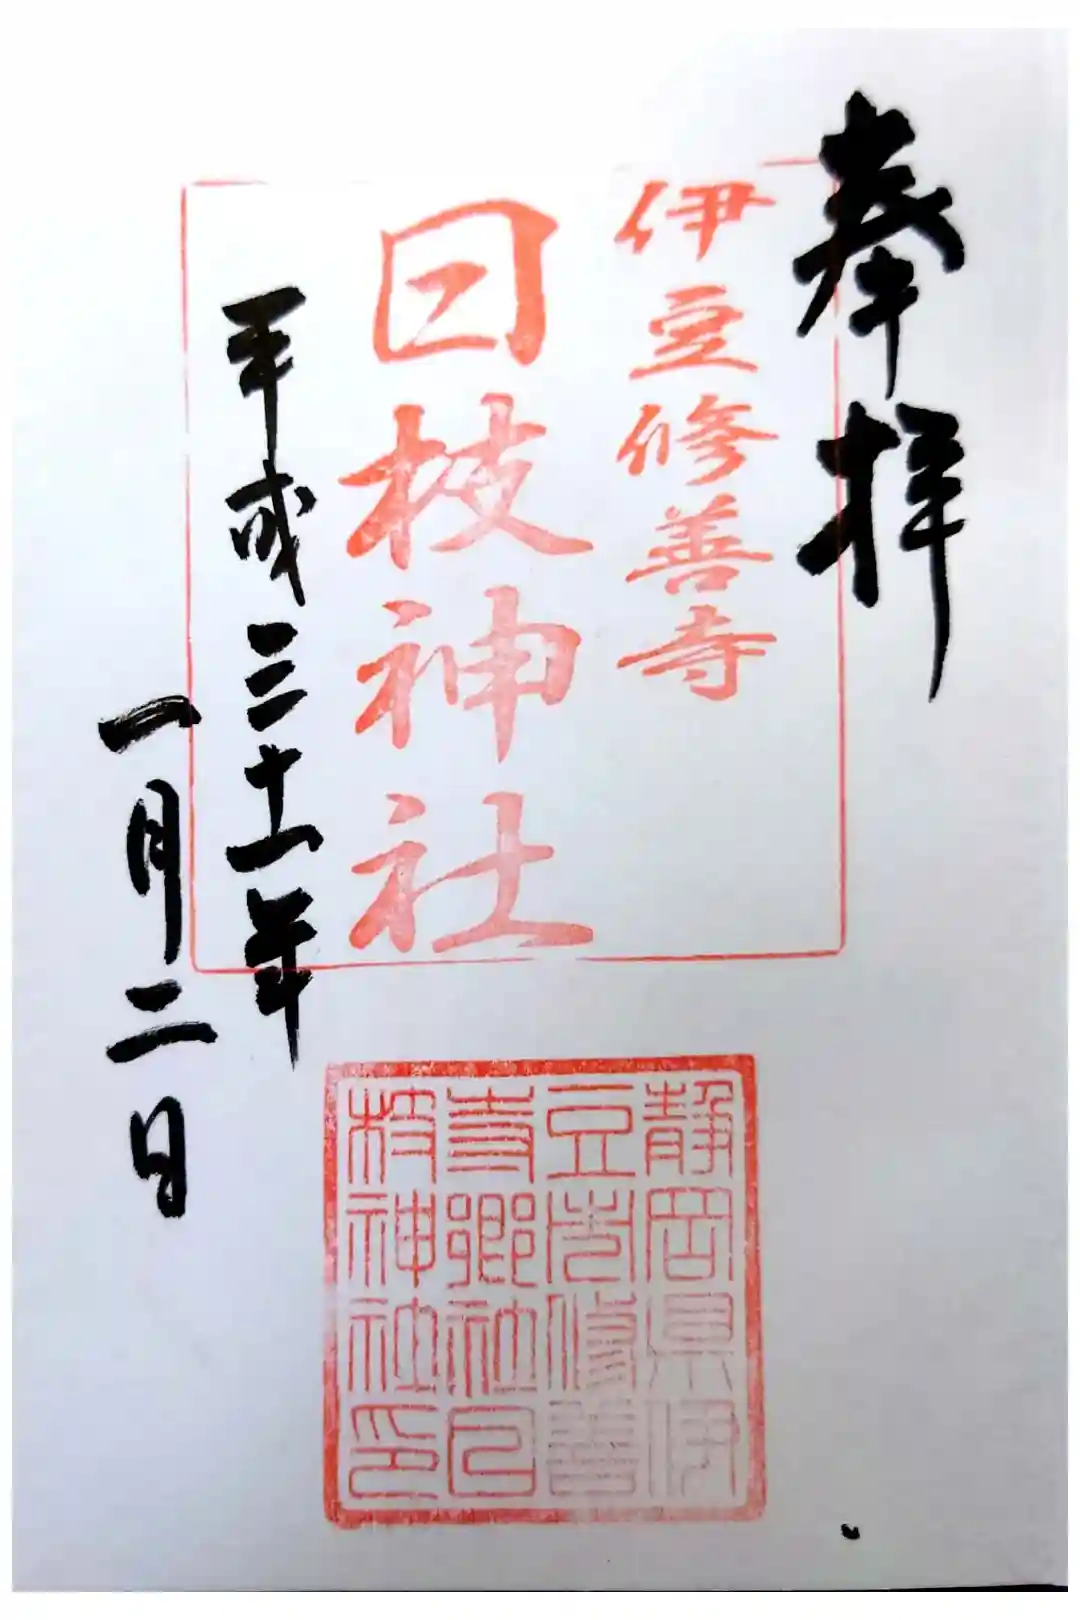 奉拝
伊豆修善寺
日枝神社
平成三十一年
一月二日
静岡県伊
豆市修善
寺郷社日
枝神社印